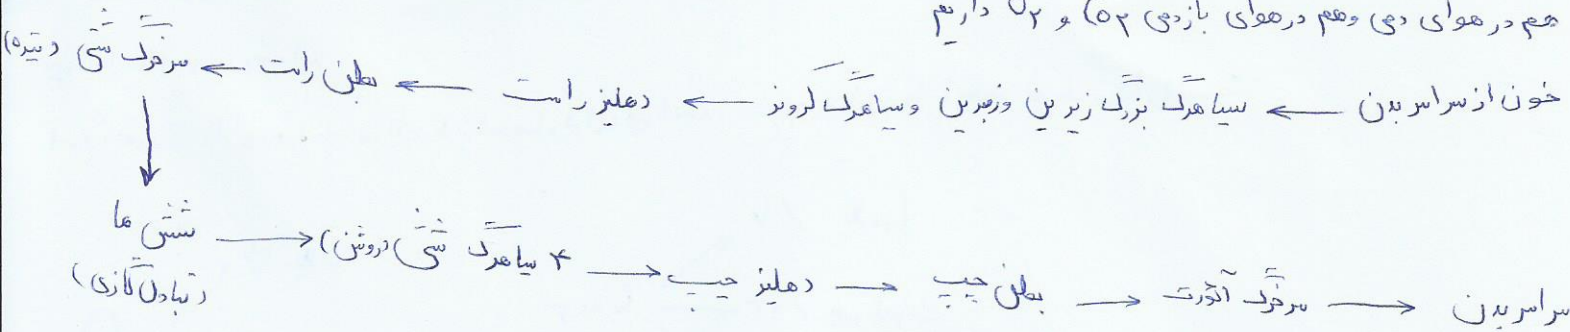 هم در هوای دمی وهم درهوای بازدمی CO۲ و O۲ داریم
خون از سراسر بدن ← سیاهرگ بزرگ زیرین و زبرین و سیاهرگ کرونر ← دهلیز راست ← بطن راست ← سرخرگ ششی (تیره)
↓
شش ها → ۴ سیاهرگ ششی (روشن) → دهلیز چپ → بطن چپ → سرخرگ آئورت → سراسر بدن
(تبادل گازی)